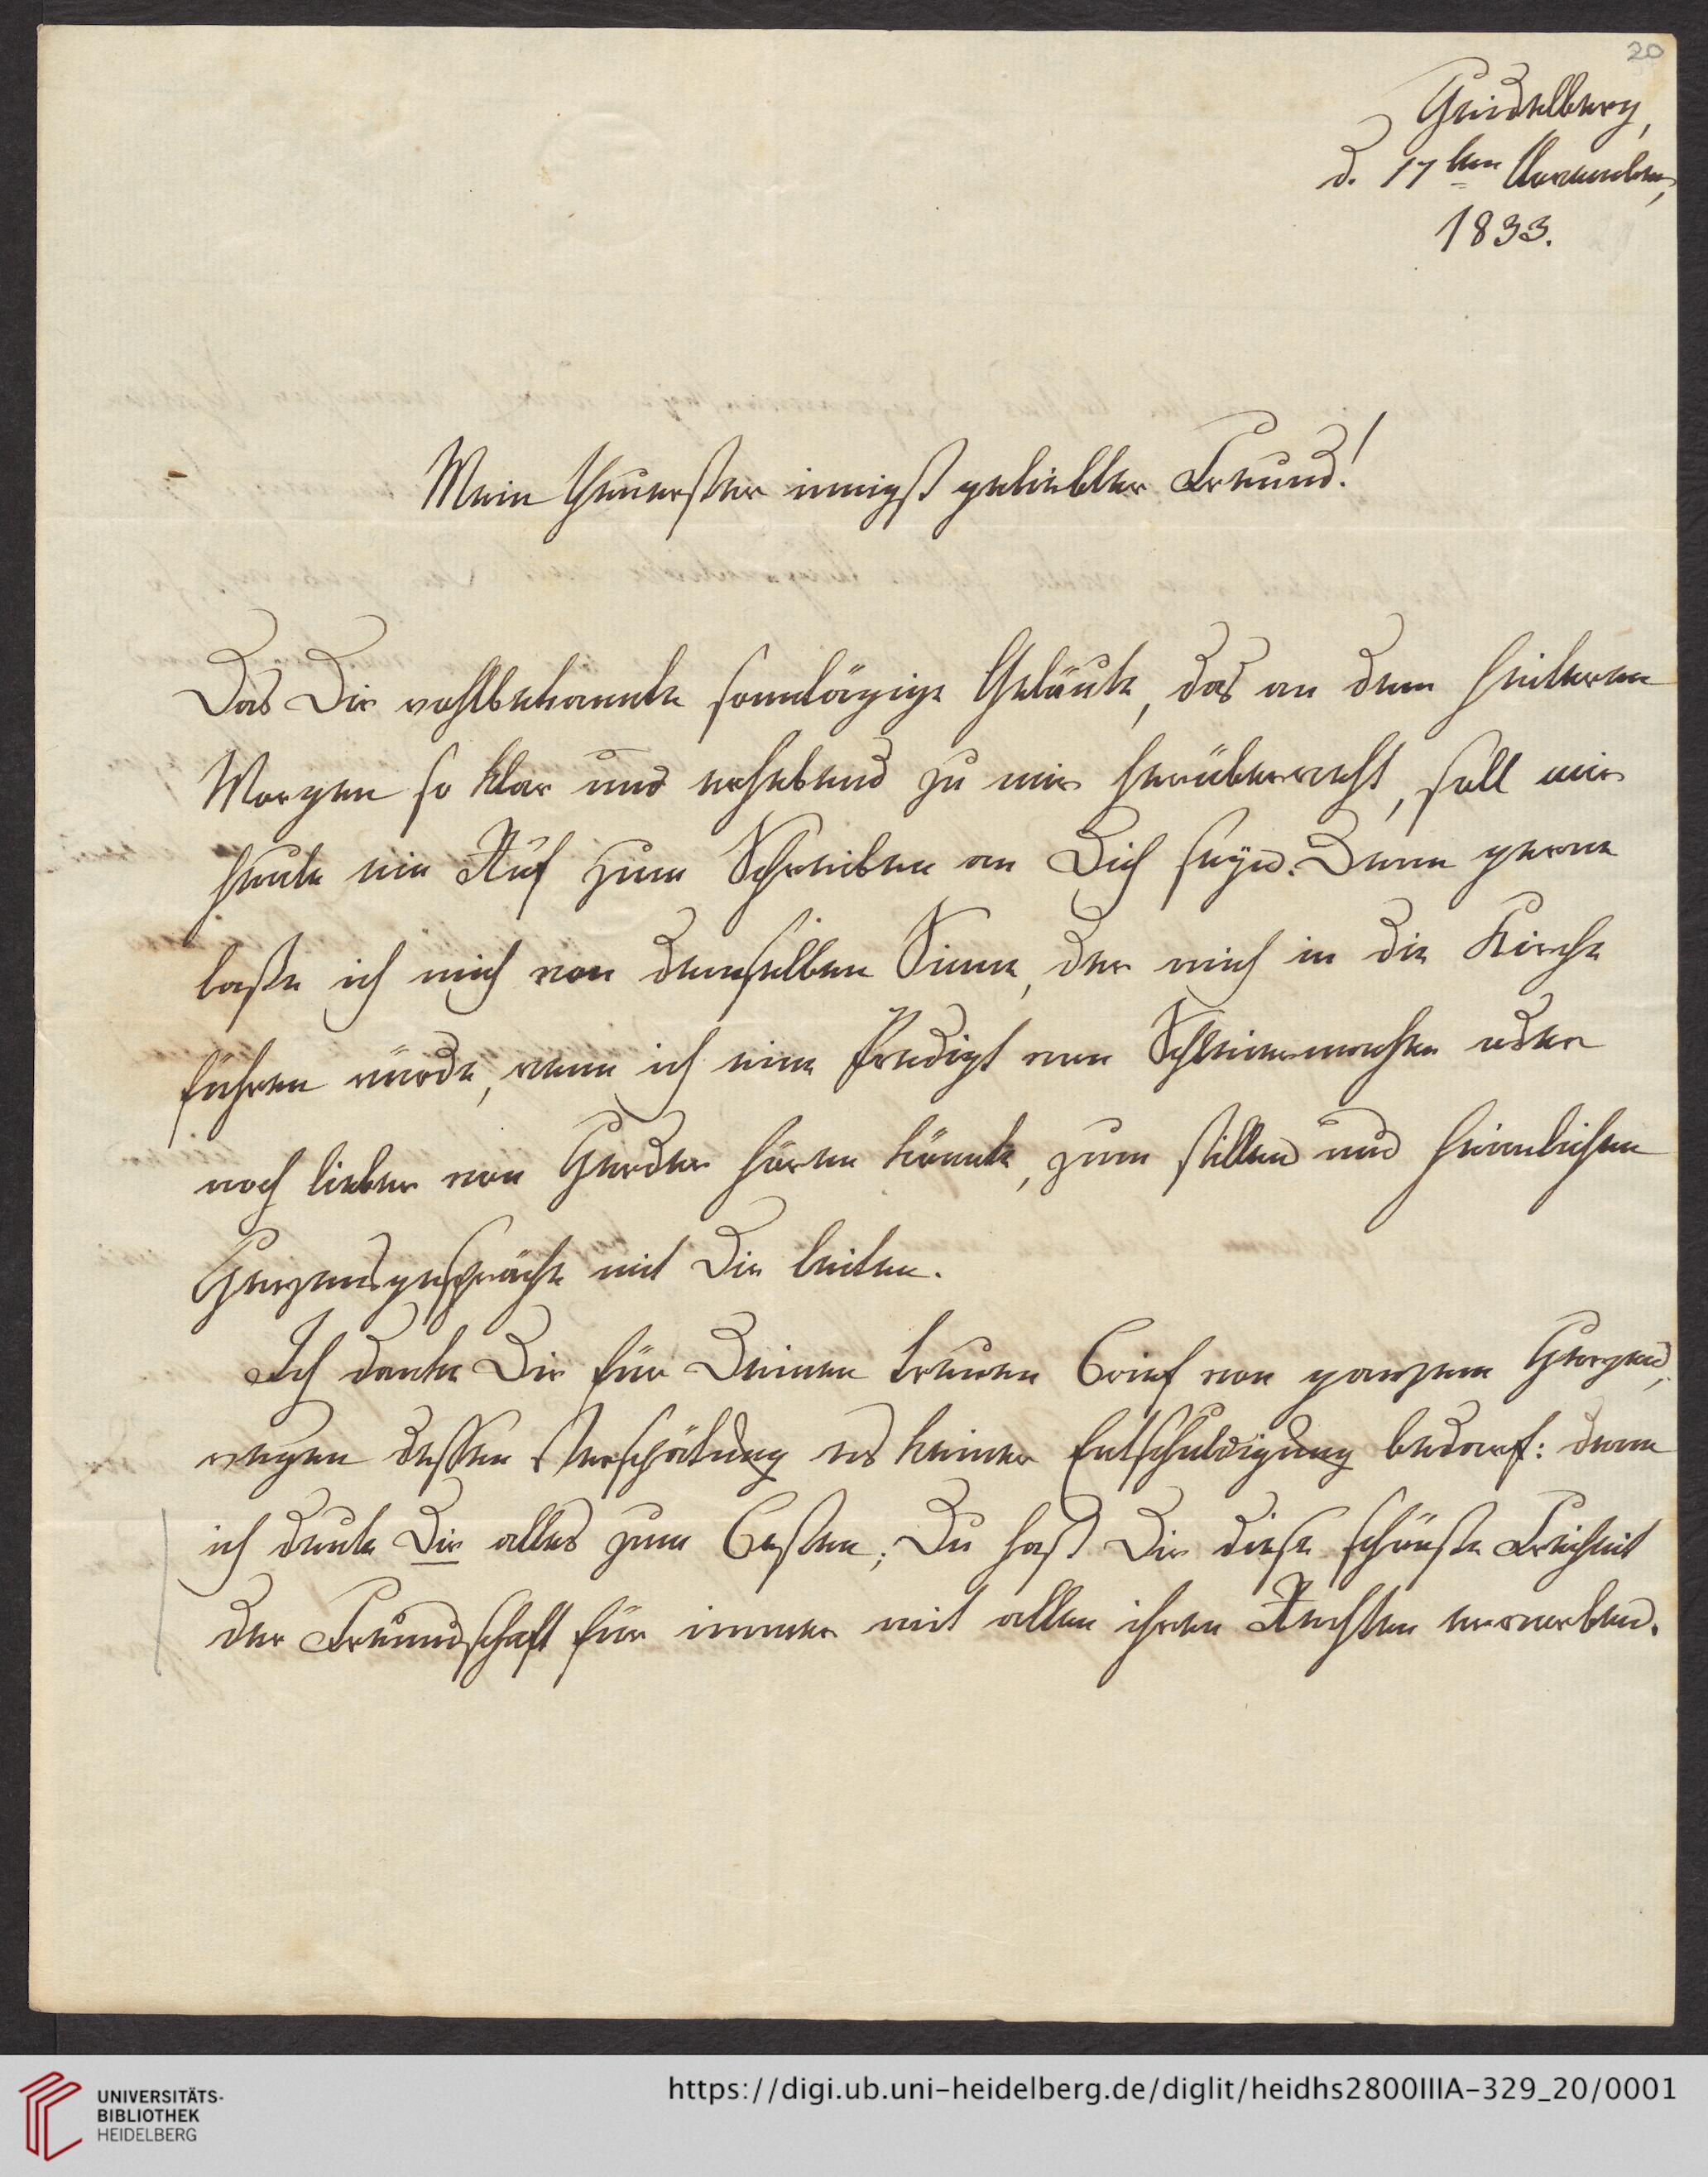 20
Heidelberg,
d. 17ten November,
1833.
Mein theuerster innigst geliebter Freund!
Das Dir wohlbekannte sonntägige Geläute, das an dem heiteren
Morgen so klar und erhebend zu mir herüberweht, soll mir
heute ein Ruf zum Schreiben an Dich seyn. Denn gerne
laße ich mich von demselben Sinne, der mich in die Kirche
führen würde, wenn ich eine Predigt von Schleiermacher oder
noch lieber von Herder hören könnte, zum stillen und heimlichen
Herzensgespräche mit Dir leiten.
Ich danke Dir für Deinen treuen Brief von ganzem Herzen,
wegen dessen Verspätung es keiner Entschuldigung bedarf: denn
ich deute Dir alles zum Besten; Du hast Dir diese schönste Freiheit
der Freundschaft für immer mit allen ihren Rechten erworben.
UNIVERSITÄTS-
BIBLIOTHEK
HEIDELBERG
https://digi.ub.uni-heidelberg.de/diglit/heidhs2800IIIA-329_20/0001